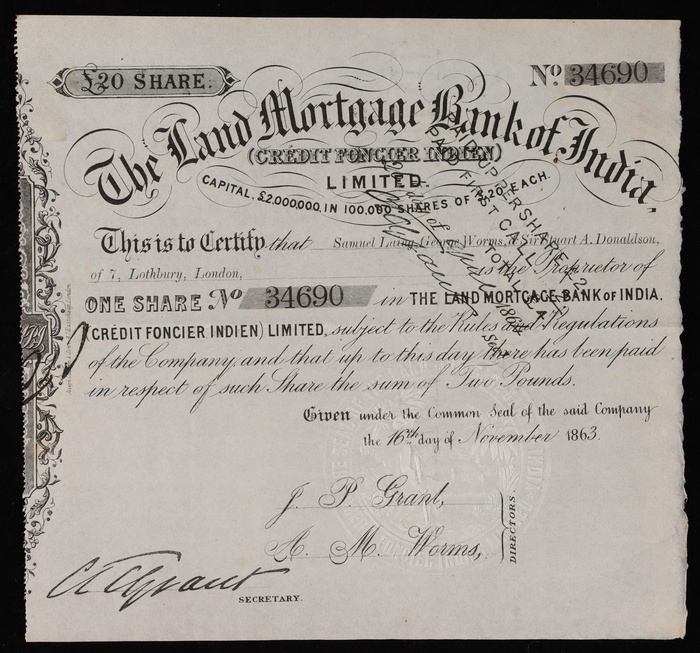 £20 SHARE.
No. 34690
The Land Mortgage Bank of India,
(CRÉDIT FONCIER INDIEN)
LIMITED.
CAPITAL, £2,000,000, IN 100,000 SHARES OF £20 EACH.
This is to Certify that Samuel Laing, George Worms, & Sir Stuart A. Donaldson,
of 7, Lothbury, London, is the Proprietor of
ONE SHARE No 34690 in THE LAND MORTGAGE BANK of INDIA,
(CRÉDIT FONCIER INDIEN) LIMITED, subject to the Rules and Regulations
of the Company, and that up to this day there has been paid
in respect of such Share the sum of Two Pounds.
Given under the Common Seal of the said Company
the 16th day of November 1863.
J. P. Grant,
A. M. Worms,
DIRECTORS.
SECRETARY.
PAID PER SHARE
FIRST CALL
TOTAL